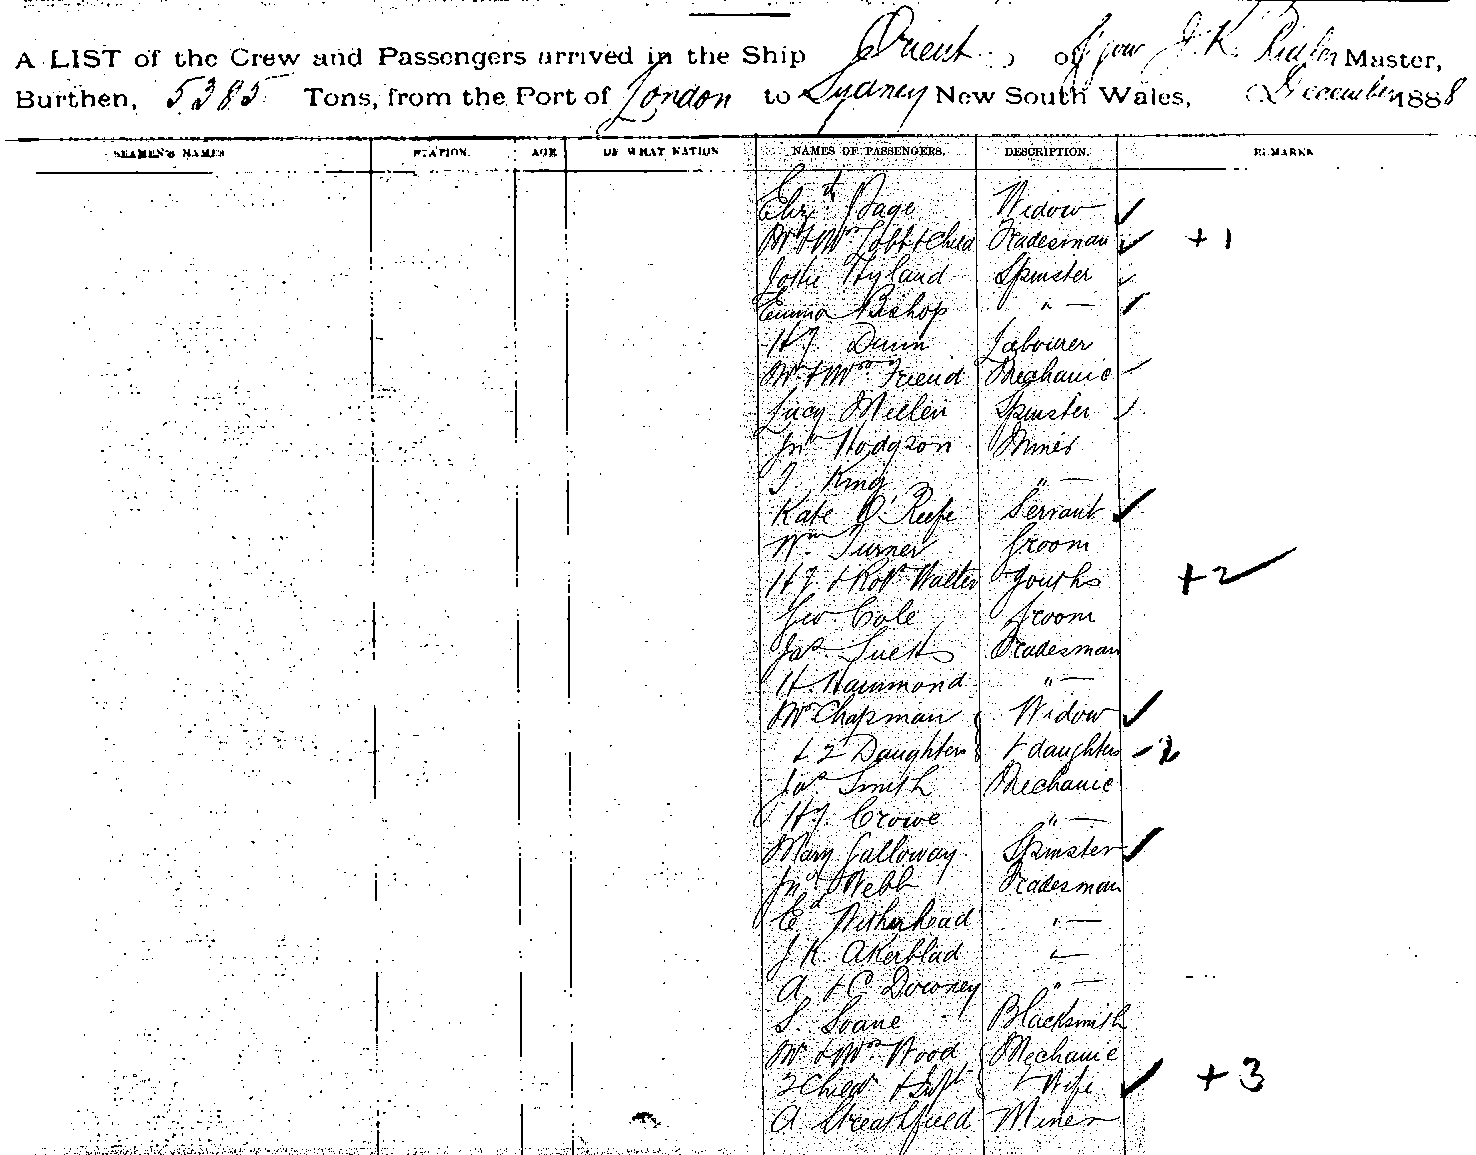 A LIST of the Crew and Passengers arrived in the Ship Orient, of J. K. Master,
Burthen, 5385 Tons, from the Port of London to Sydney New South Wales, December 1888
SEAMEN'S NAMES STATION. AGE OF WHAT NATION NAMES OF PASSENGERS. DESCRIPTION. REMARKS
Elizth Page Widow ✓
Mr + Mrs Cobb + Child Tradesman ✓ +1
Hyland Spinster ✓
Emma Bishop " — ✓
Hy Dunn Labourer
Mr + Mrs Friend Mechanic ✓
Lucy Mellen Spinster ✓
Jno Hodgson Miner
J. King " —
Kate O'Keefe Servant ✓
Wm Turner Groom
Hy + Robt Walter Youths +2 ✓
Geo Cole Groom
Jas Tradesman
H. Hammond " —
Mrs Chapman Widow ✓
+ 2 Daughters + daughters - 2
Jas Smith Mechanic
Hy Crowe " —
Mary Galloway Spinster ✓
Jno Webb Tradesman
Ed Witherhead " —
J K Akerblad " —
A + C Downey " —
S. Soane Blacksmith
Mr + Mrs Wood Mechanic
2 Child + Inft + Wife ✓ +3
A Streathfield Miner